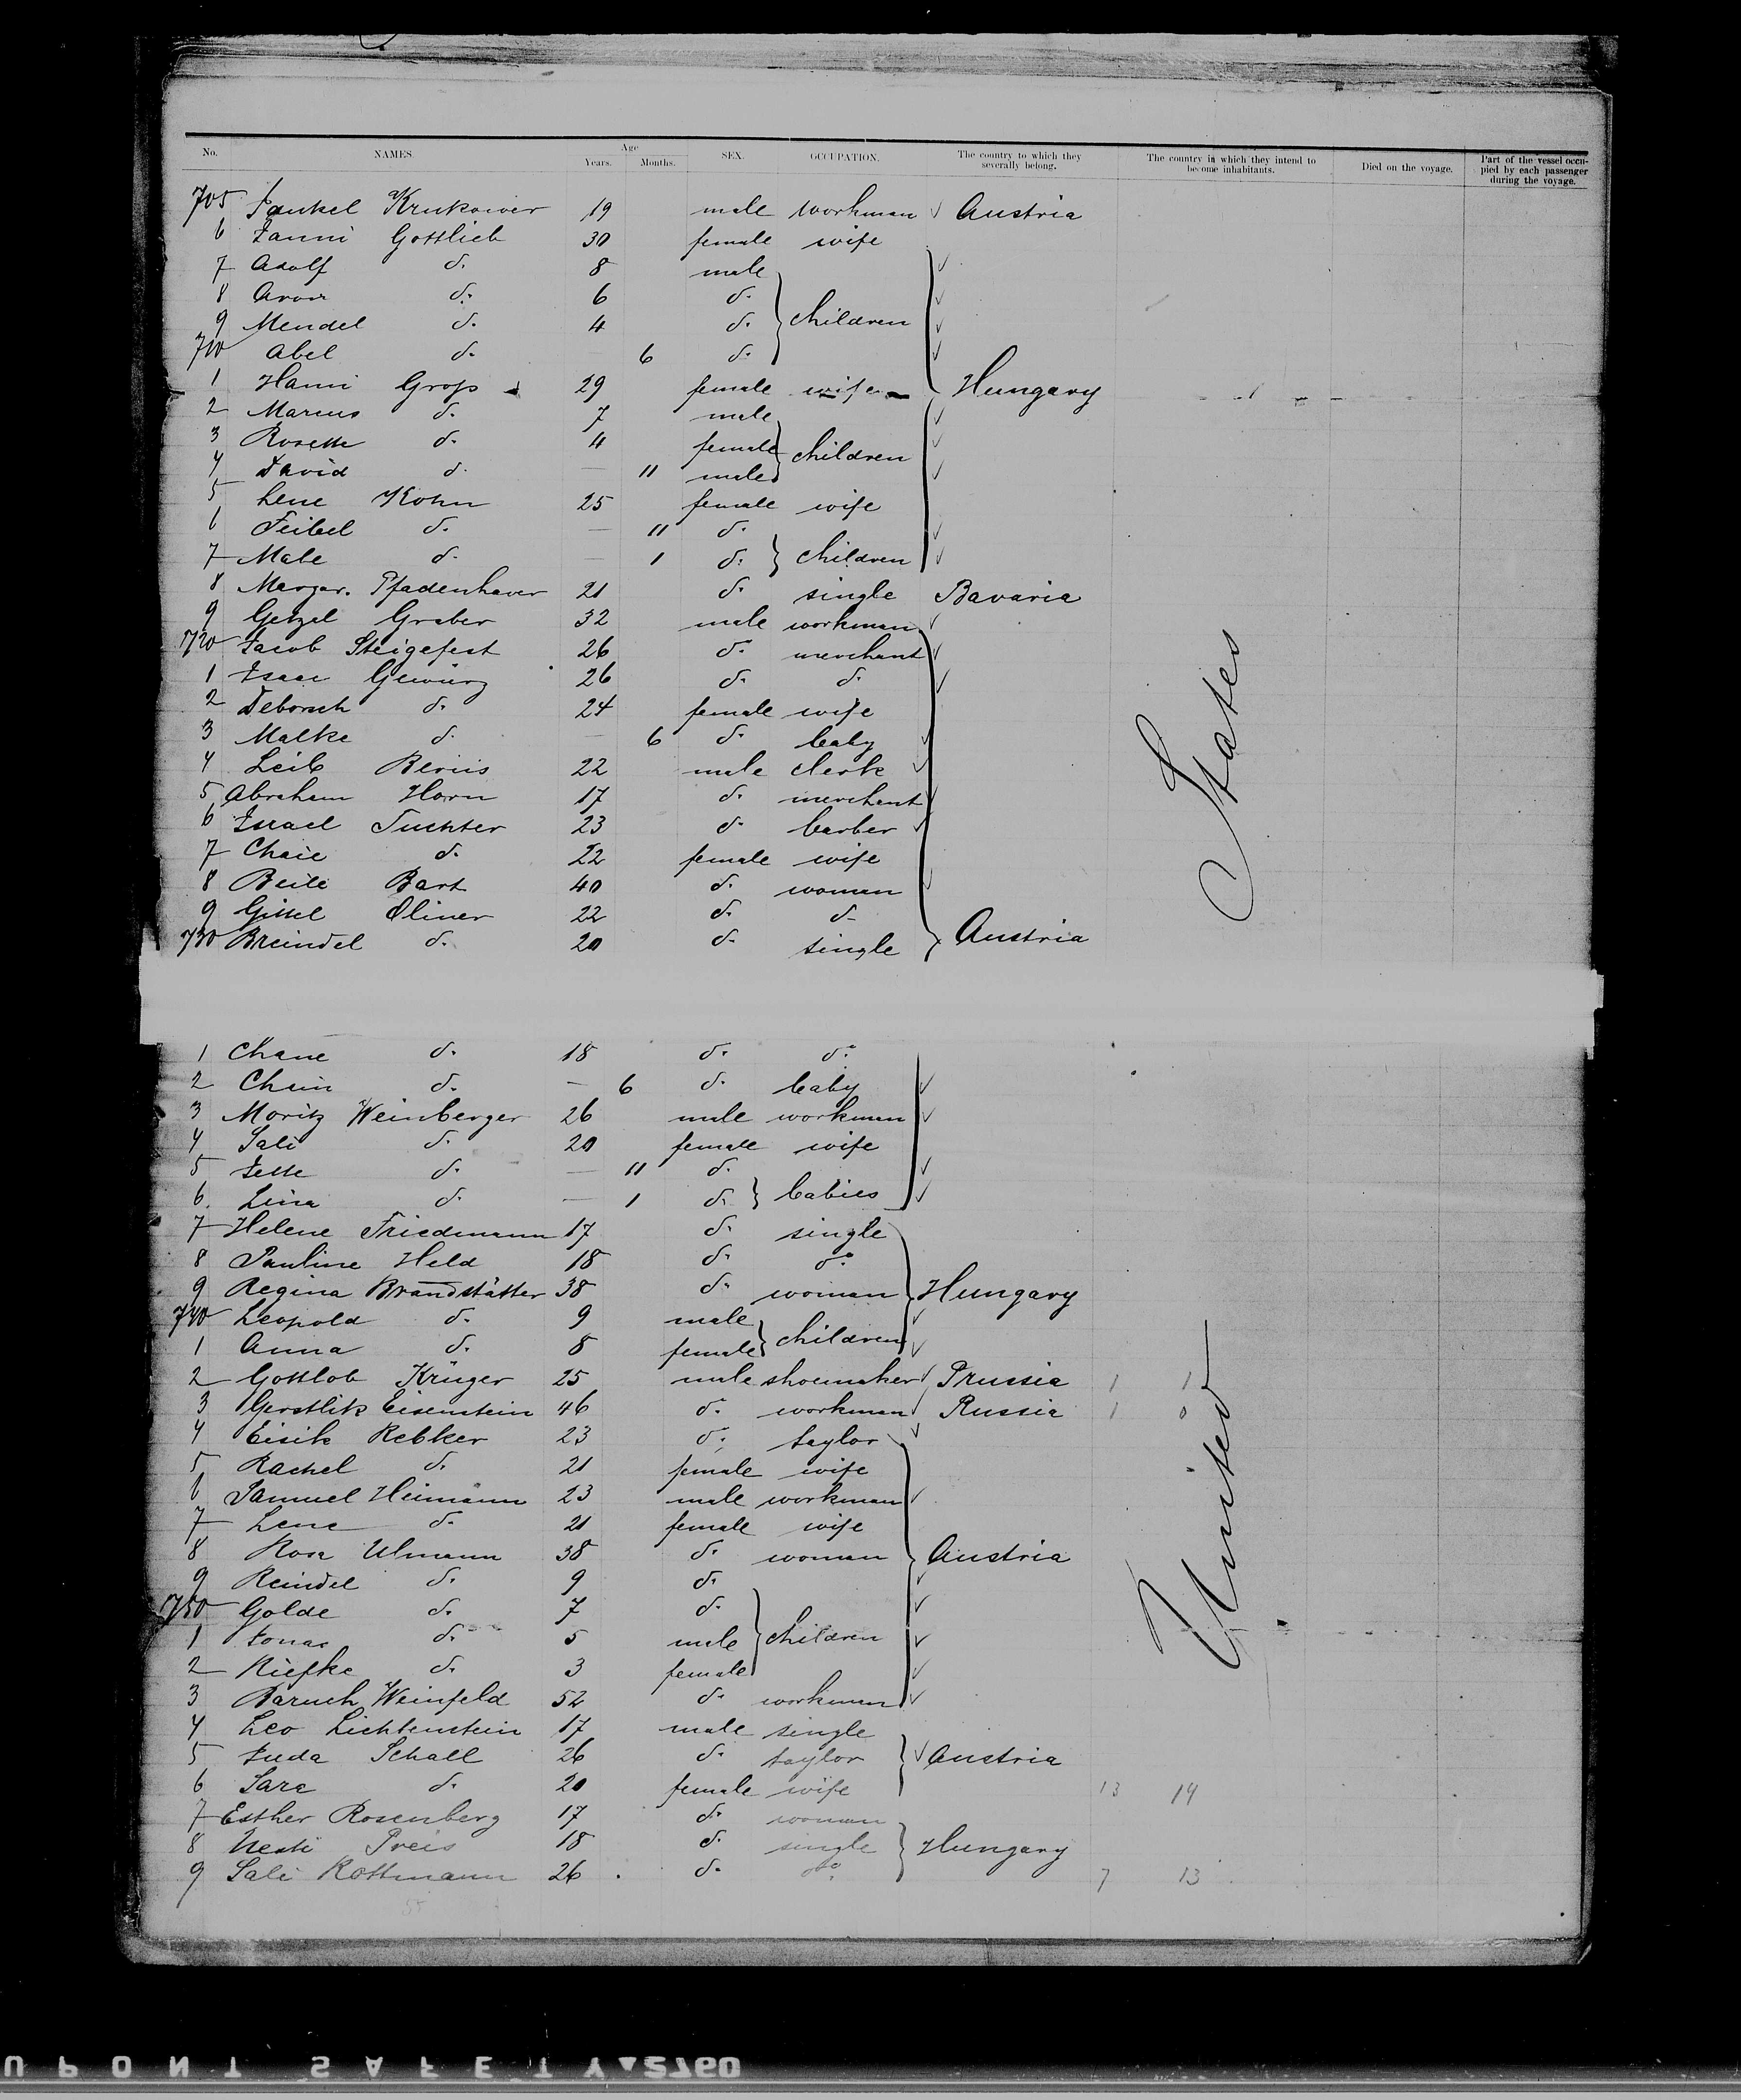 No. NAMES Age Years. Months. SEX. OCCUPATION. The country to which they severally belong. The country in which they intend to become inhabitants. Died on the voyage. Part of the vessel occupied by each passenger during the voyage.
705 Jankel Krukower 19 male workman Austria
6 Fanni Gottlieb 30 female wife
7 Adolf d. 8 male
8 Aron d. 6 d.
9 Mendel d. 4 d. children
710 Abel d. — 6 d.
1 Hani Groß 29 female wife Hungary
2 Marcus d. 7 male
3 Rosette d. 4 female children
4 David d. — 11 male
5 Lene Kohn 25 female wife
6 Feibel d. — 11 d.
7 Male d. — 1 d. children
8 Margar. Pfadenhauer 21 d. single Bavaria
9 Getzel Graber 32 male workman
720 Jacob Steigefest 26 d. merchant
1 Isaac Gewürz 26 d. d.
2 Deborah d. 24 female wife
3 Malke d. — 6 d. baby
4 Leib 22 male clerk
5 Abraham Horn 17 d. merchant
6 Israel Tuchter 23 d. barber
7 Chaie d. 22 female wife
8 Beile Bart 40 d. woman
9 Gittel Oliner 22 d. d.
730 Breindel d. 20 d. single Austria
1 Chane d. 18 d. do.
2 d. — 6 d. baby
3 Moritz Weinberger 26 male workman
4 Sali d. 20 female wife
5 Jette d. — 11 d.
6 Lina d. — 1 d. babies
7 Helene Friedmann 17 d. single
8 Pauline Held 18 d. do.
9 Regina Brandstätter 38 d. woman Hungary
740 Leopold d. 9 male
1 Anna d. 8 female children
2 Gottlob Krüger 25 male shoemaker Prussia 1 1
3 Eisenstein 46 d. workman Russia 1 0
4 Eisik Rebker 23 d. taylor
5 Rachel d. 21 female wife
6 Samuel Heimann 23 male workman
7 Lene d. 21 female wife
8 Rosa Ulmann 38 d. woman Austria
9 Reindel d. 9 d.
750 Golde d. 7 d.
1 Jonas d. 5 male children
2 Riefke d. 3 female
3 Baruch Weinfeld 52 d. workman
4 Leo Lichtenstein 17 male single
5 Juda Schall 26 d. taylor Austria
6 Sara d. 20 female wife 13 14
7 Esther Rosenberg 17 d. woman
8 Preis 18 d. single Hungary
9 Sali Rottmann 26 d. do. 7 13
United States
55
DUPONT SAFETY 2760